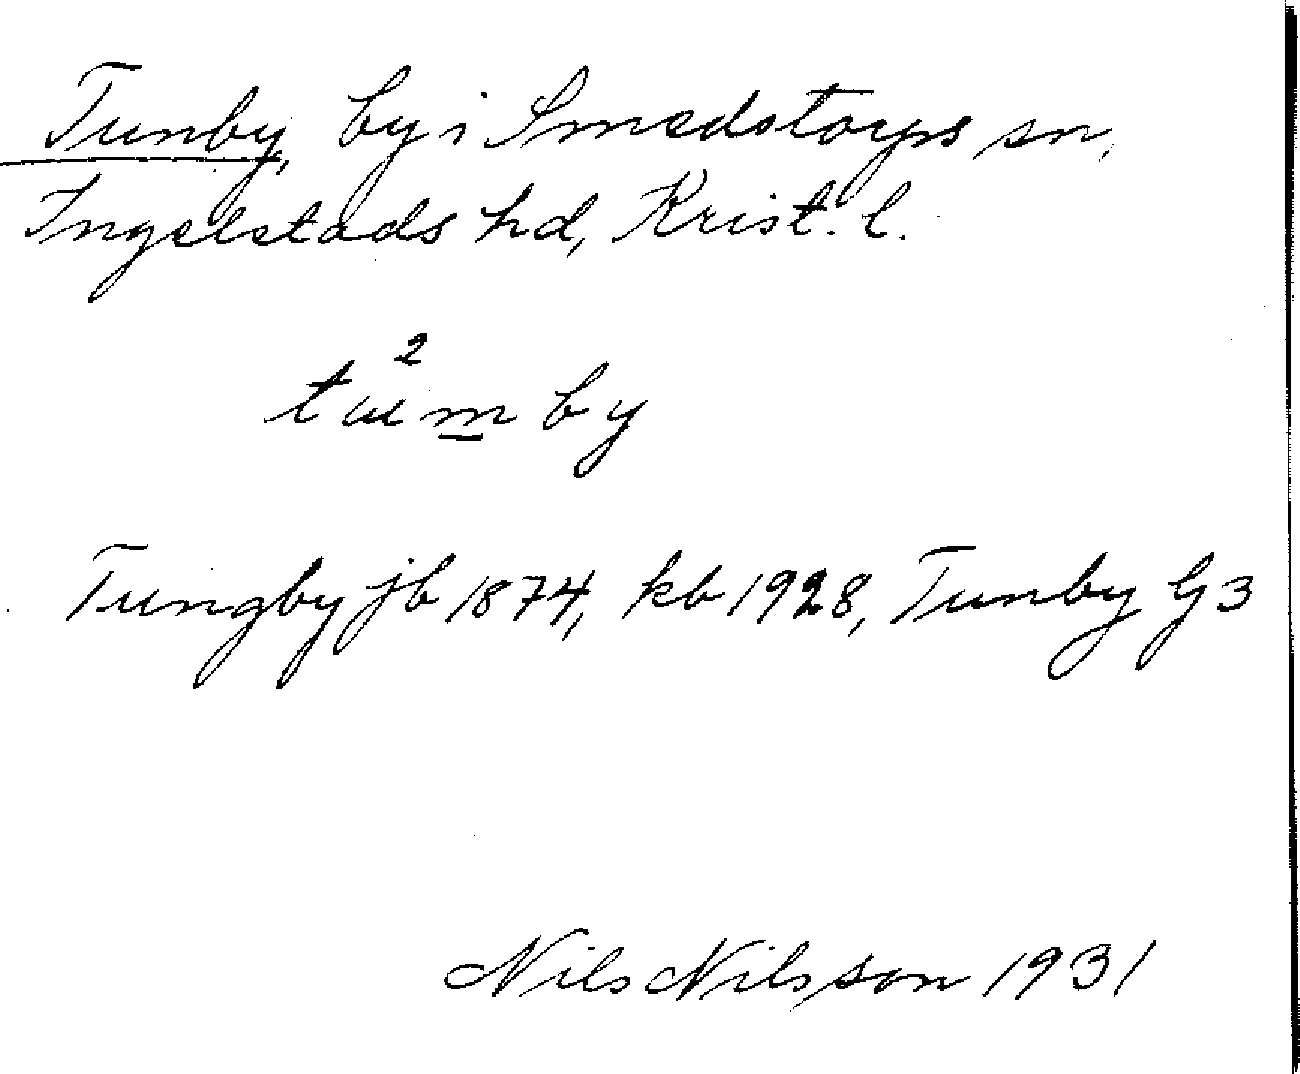 Tunby, by i Smedstorps sn,
Ingelstads hd, Krist. l.
by
Tungby jb 1874, kb 1928, Tunby G3
Nils Nilsson 1931